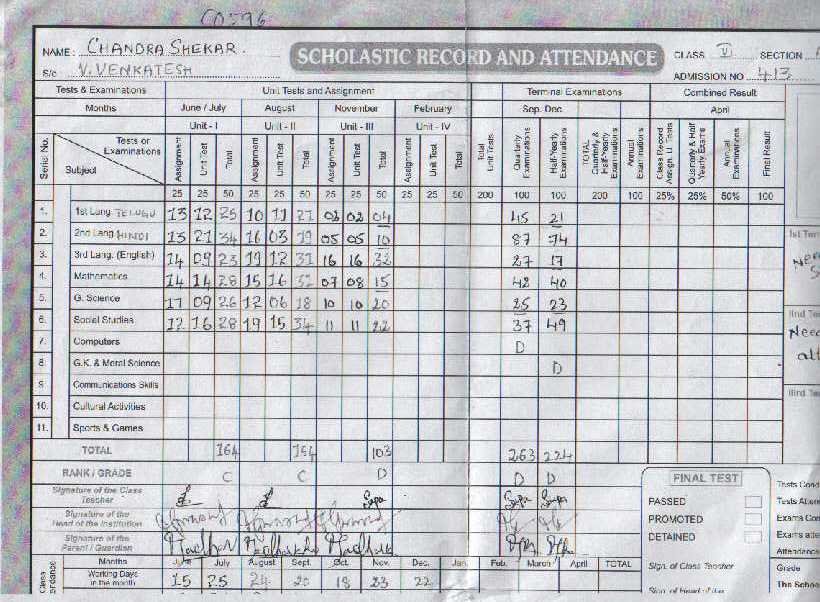 C0596
NAME: CHANDRA SHEKAR. SCHOLASTIC RECORD AND ATTENDANCE CLASS VI SECTION
S/o V. VENKATESH ADMISSION NO 413
Tests & Examinations Unit Tests and Assignment Terminal Examinations Combined Result
Months June / July August November February Sep. Dec. April
Unit - I Unit - II Unit - III Unit - IV
Serial No. Tests or Examinations Subject Assignment Unit Test Total Assignment Unit Test Total Assignment Unit Test Total Assignment Unit Test Total Total Unit Tests Quarterly Examinations Half-Yearly Examinations TOTAL Quarterly & Half-Yearly Examinations Annual Examinations Class Record Assign. U. Tests Quarterly & Half Yearly Exams Annual Examinations Final Result
25 25 50 25 25 50 25 25 50 25 25 50 200 100 100 200 100 25% 25% 50% 100
1. 1st Lang. TELUGU 13 12 25 10 11 21 02 02 04 45 21
2. 2nd Lang. HINDI 13 21 34 16 03 19 05 05 10 87 74 1st Ter
3. 3rd Lang. (English) 14 09 23 19 12 31 16 16 32 27 17
4. Mathematics 14 14 28 15 16 31 07 08 15 42 40
5. G. Science 17 09 26 12 06 18 10 10 20 25 23 IInd Ter
6. Social Studies 12 16 28 19 15 34 11 11 22 37 49 Need
7. Computers D
8. G.K. & Moral Science D
9. Communications Skills IIIrd Ter
10. Cultural Activities
11. Sports & Games
TOTAL 164 154 103 263 224
RANK / GRADE C C D D D FINAL TEST
Signature of the Class Teacher PASSED
Signature of the Head of the Institution PROMOTED
Signature of the Parent / Guardian DETAINED
Tests Cond
Tests Atten
Exams Con
Exams atte
Attendance
Grade
The Schoo
Months June July August Sept. Oct. Nov. Dec. Jan. Feb. March April TOTAL Sign. of Class Teacher
Working Days in the month 15 25 24 20 18 23 22
Sign. of Head of the